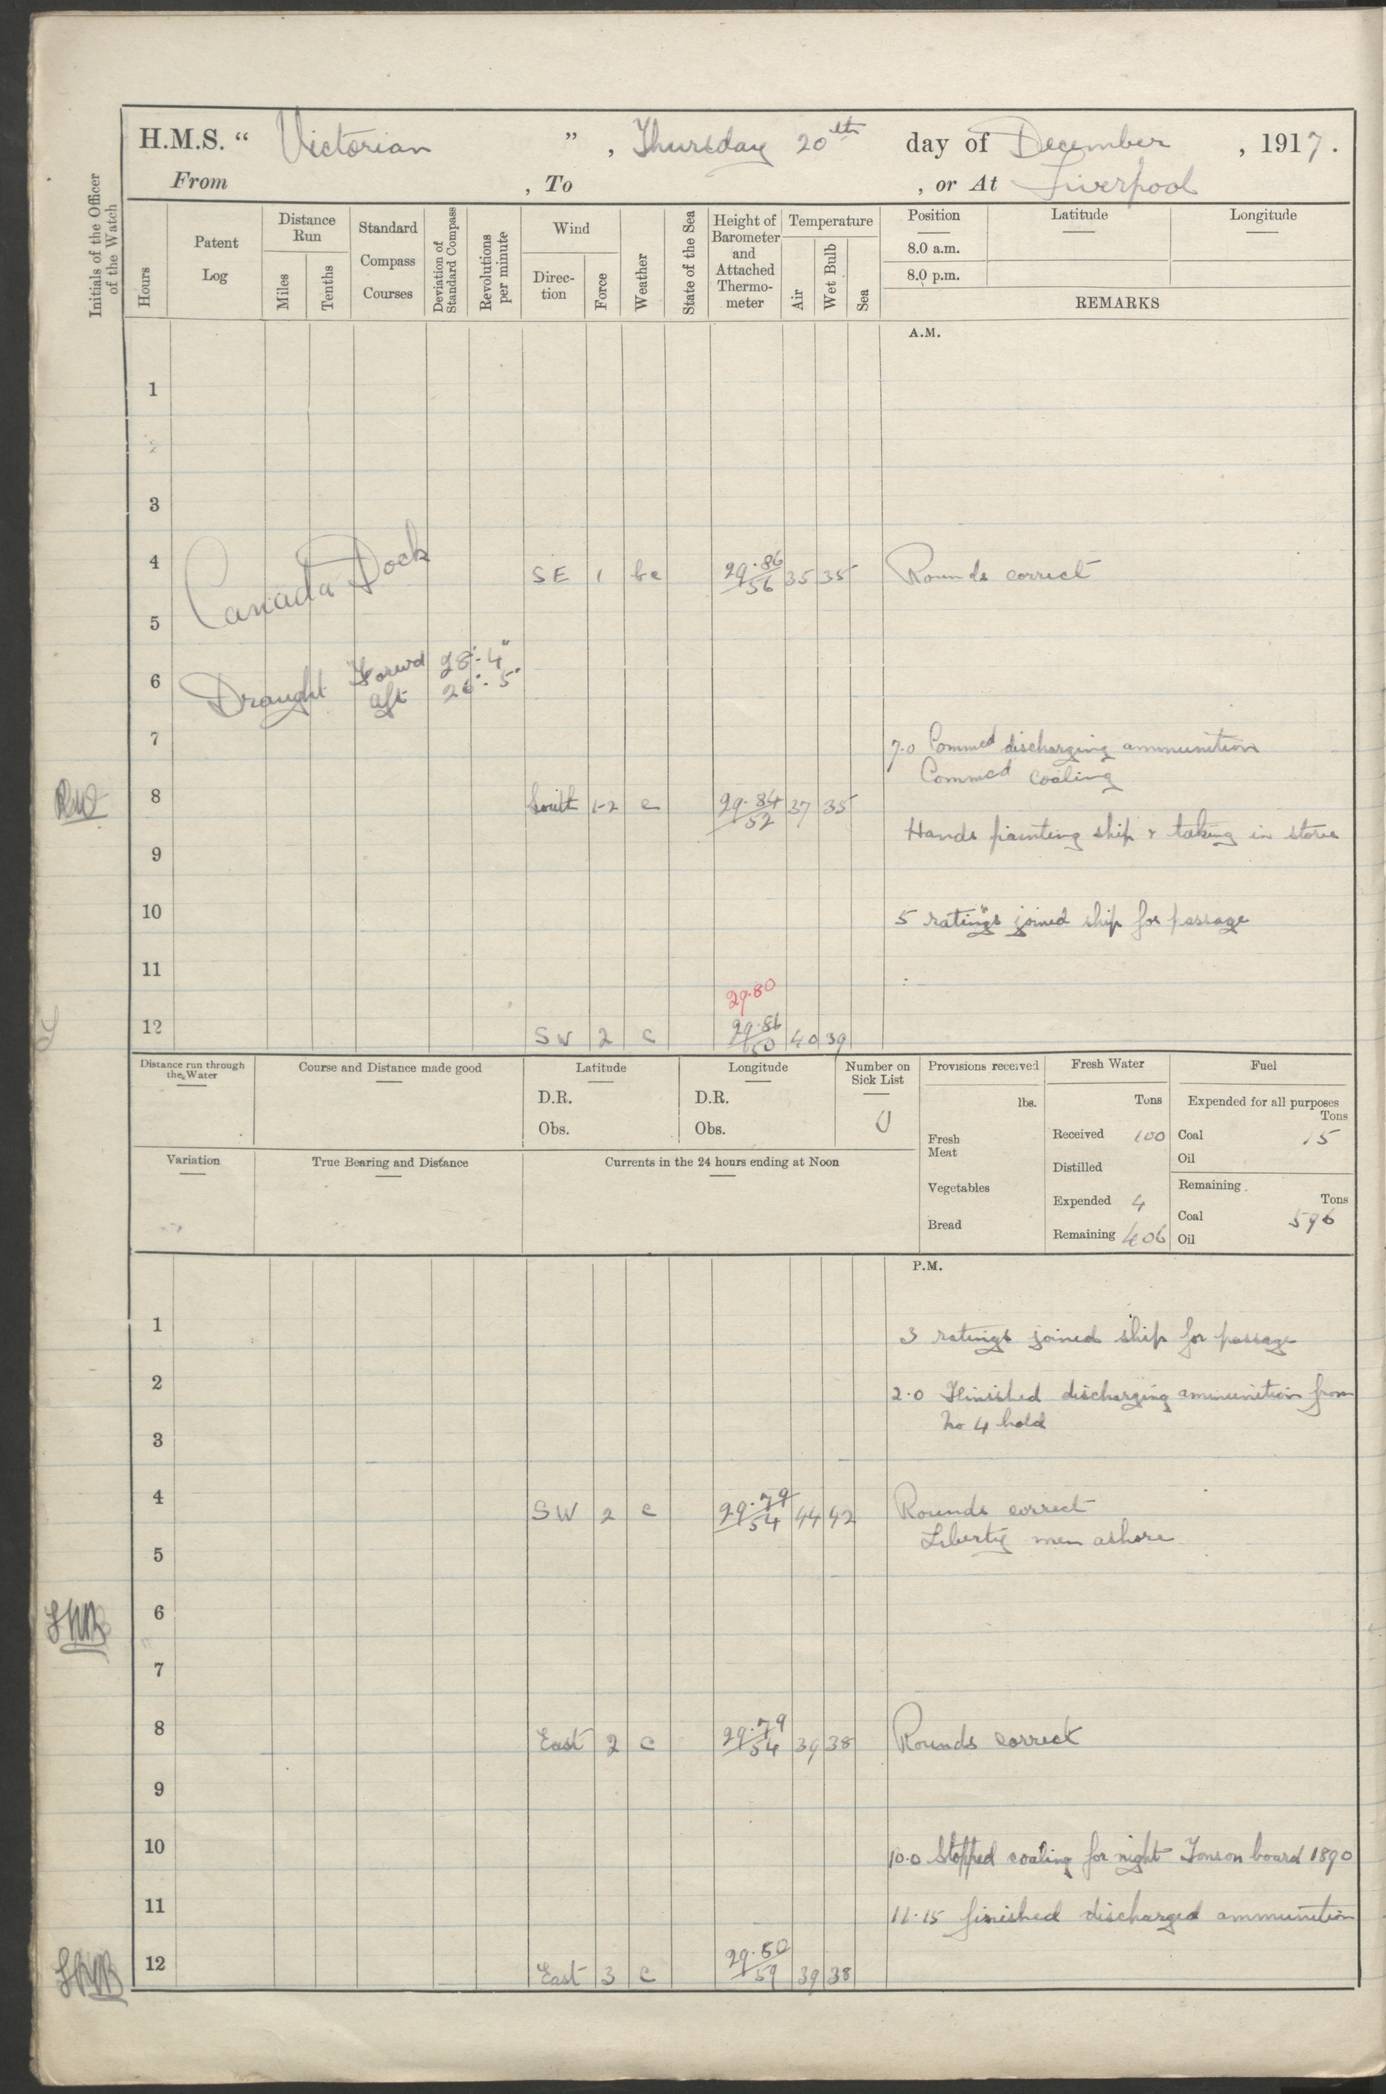 H.M.S. “ Victorian ” , Thursday 20th day of December , 1917.
From , To , or At Liverpool
Initials of the Officer of the Watch
Hours
Patent Log
Distance Run
Miles
Tenths
Standard Compass Courses
Deviation of Standard Compass
Revolutions per minute
Wind
Direc-tion
Force
Weather
State of the Sea
Height of Barometer and Attached Thermo-meter
Temperature
Air
Wet Bulb
Sea
Position Latitude Longitude
8.0 a.m.
8.0 p.m.
REMARKS
A.M.
1
2
3
Canada Dock
4 SE 1 bc 29.86/56 35 35 Rounds correct
5
Draught Forwd 28'-4"
6 aft 26'-5"
7 7.0 Commed discharging ammunition
Commed coaling
8 South 1-2 c 29.84/52 37 35
Hands painting ship & taking in stores
9
10 5 ratings joined ship for passage
11
29.80
12 SW 2 c 29.86/50 40 39
Distance run through the Water
Course and Distance made good
Latitude
D.R.
Obs.
Longitude
D.R.
Obs.
Number on Sick List
0
Variation
True Bearing and Distance
Currents in the 24 hours ending at Noon
Provisions received
lbs.
Fresh Meat
Vegetables
Bread
Fresh Water
Tons
Received 100
Distilled
Expended 4
Remaining 406
Fuel
Expended for all purposes
Tons
Coal 15
Oil
Remaining
Tons
Coal 596
Oil
P.M.
1 3 ratings joined ship for passage
2 2.0 Finished discharging ammunition from
No 4 hold
3
4 SW 2 c 29.79/54 44 42 Rounds correct
Liberty men ashore
5
6
7
8 East 2 c 29.79/54 39 38 Rounds correct
9
10 10.0 Stopped coaling for night Tons on board 1890
11 11.15 finished discharged ammunition
12 East 3 c 29.80/59 39 38